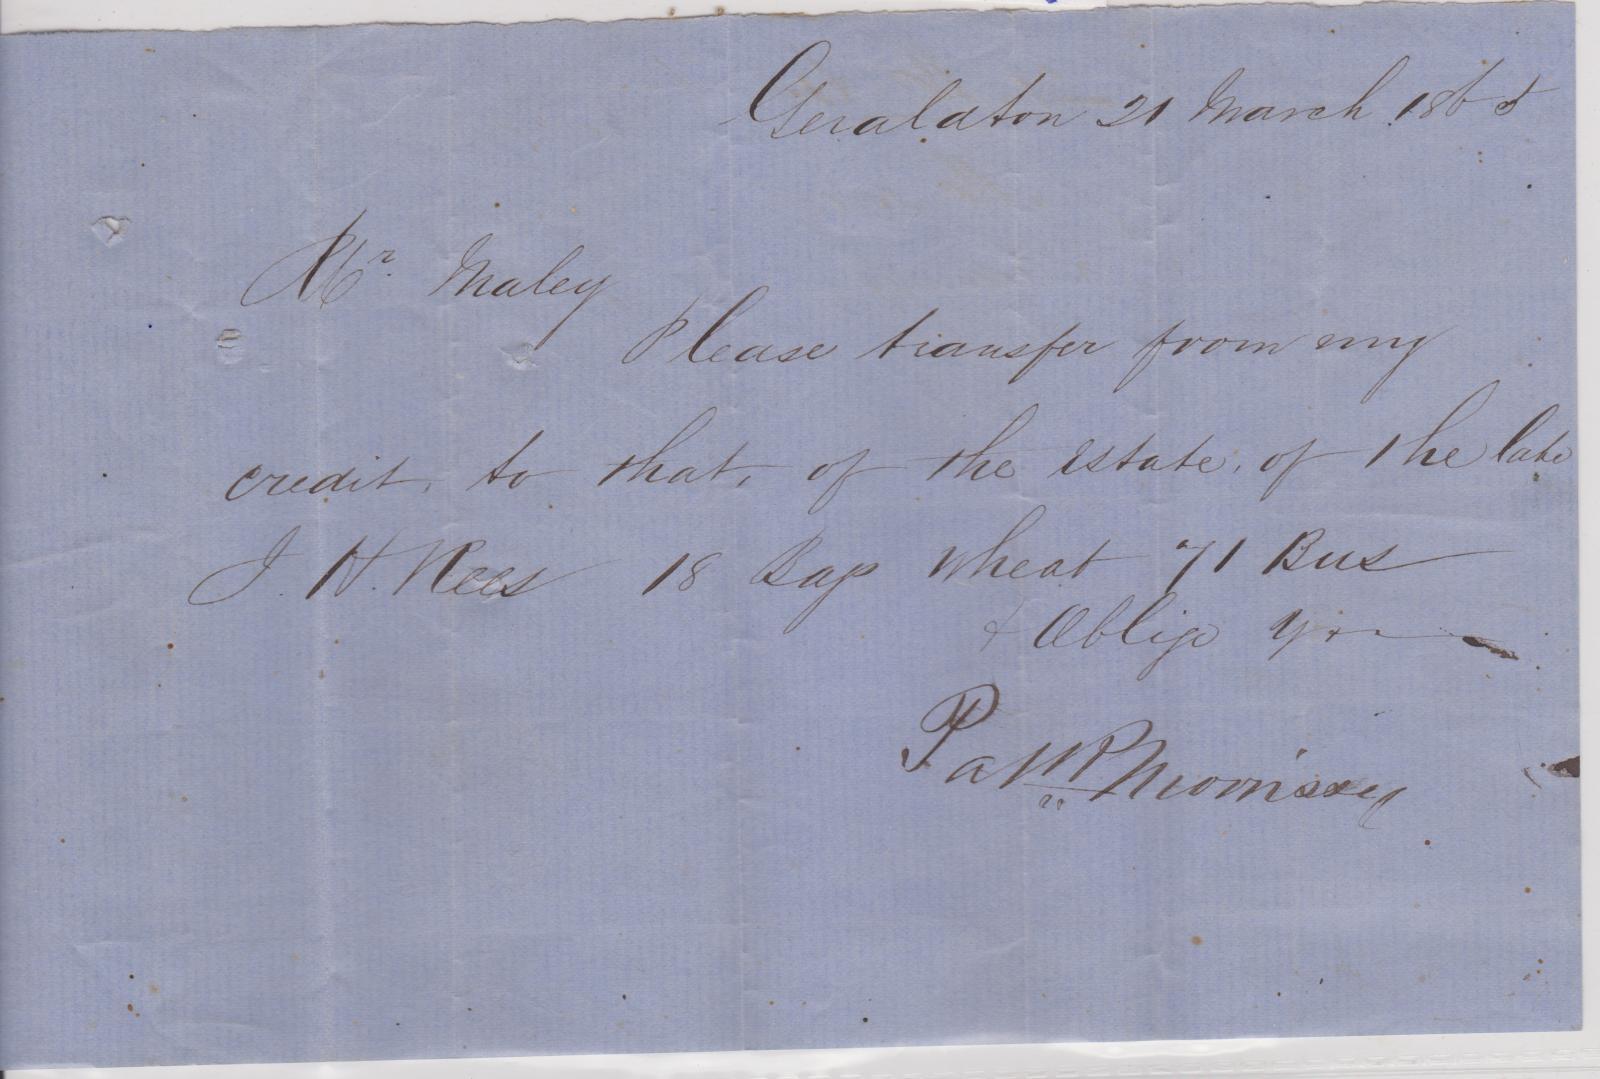 Geraldton 21 March 186
Mr. Maley
Please transfer from my
credit, to that, of the Estate, of the late
J. H. Rees 18 Bags wheat 71 Bus
& Oblige Yrs
Pat P Morrissey